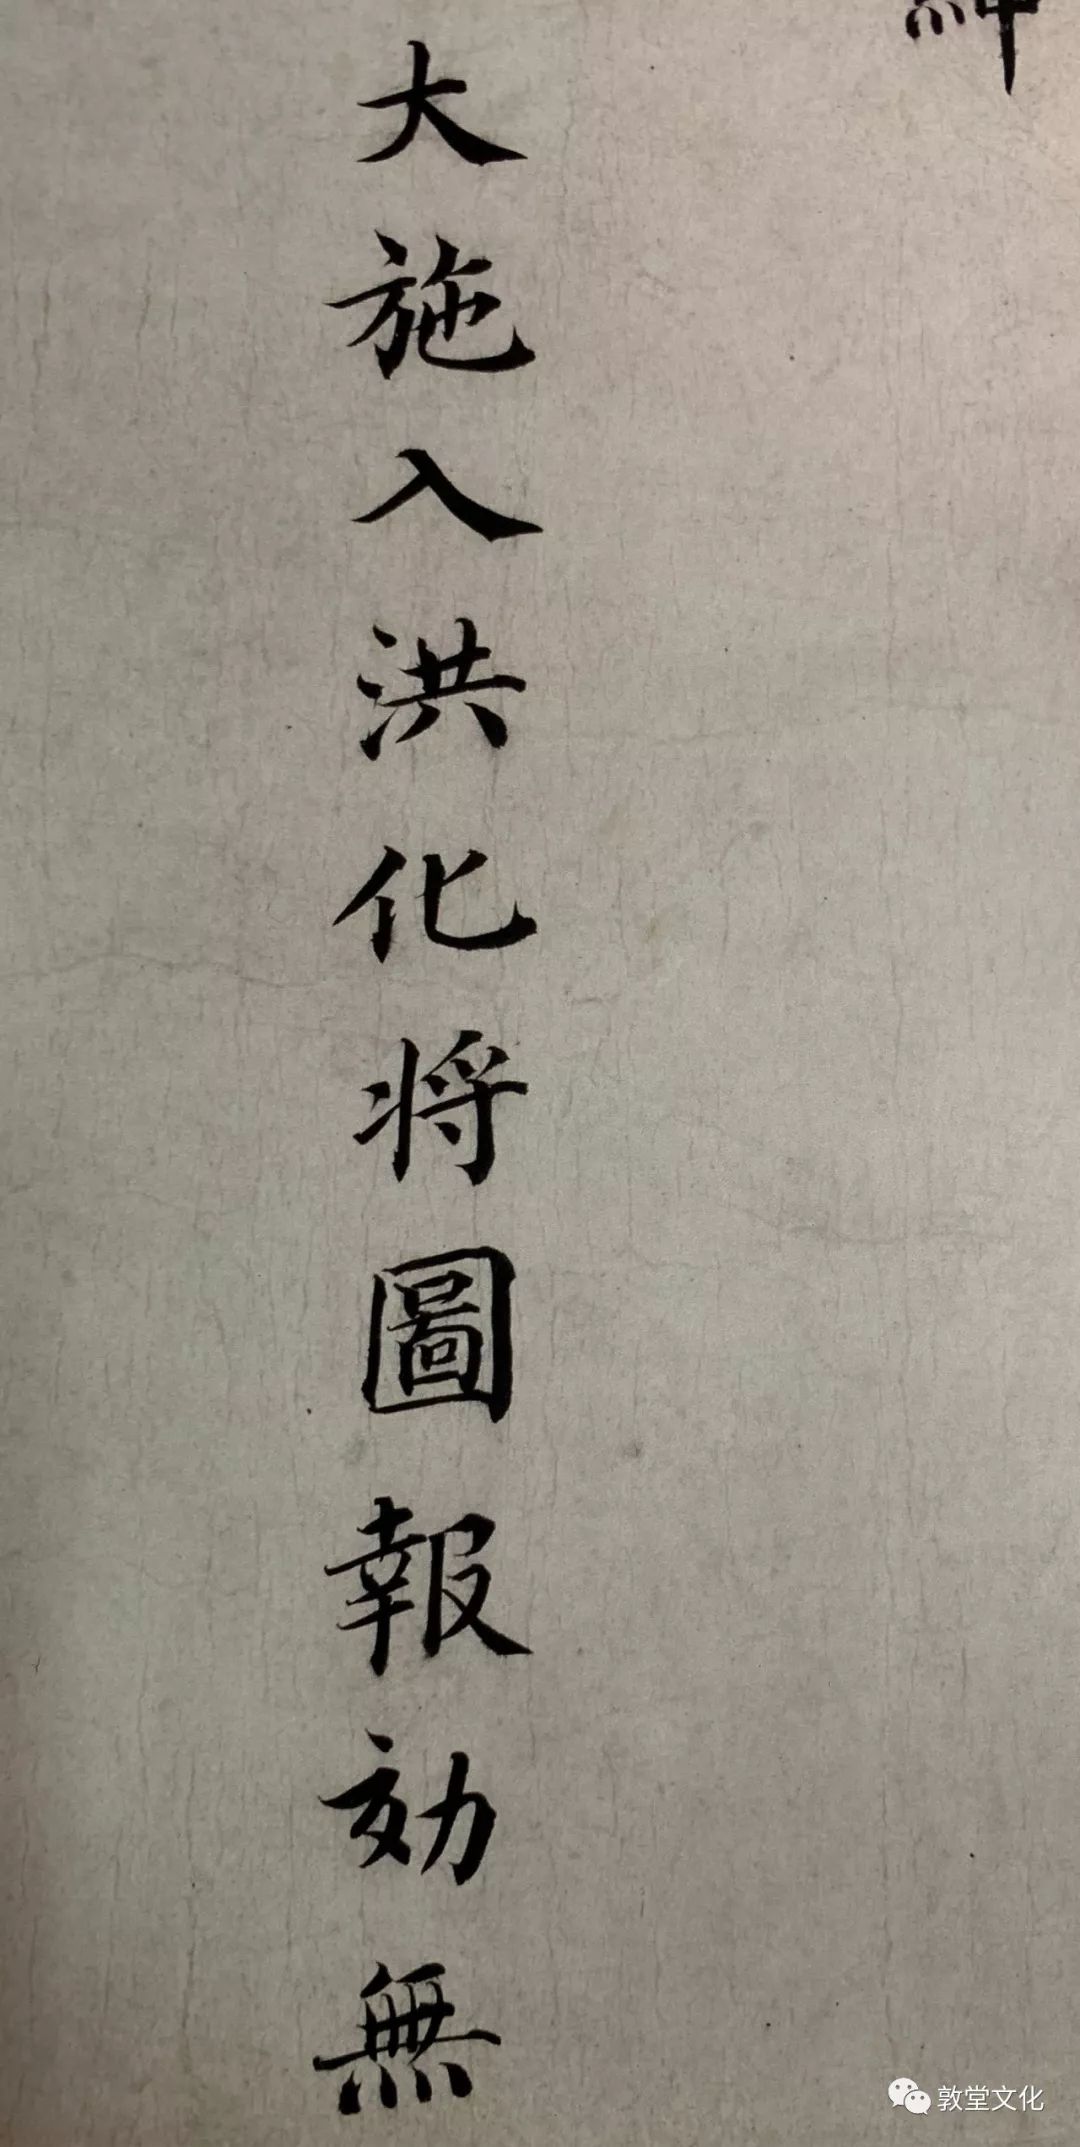 大施入洪化将圖報効無
敦堂文化